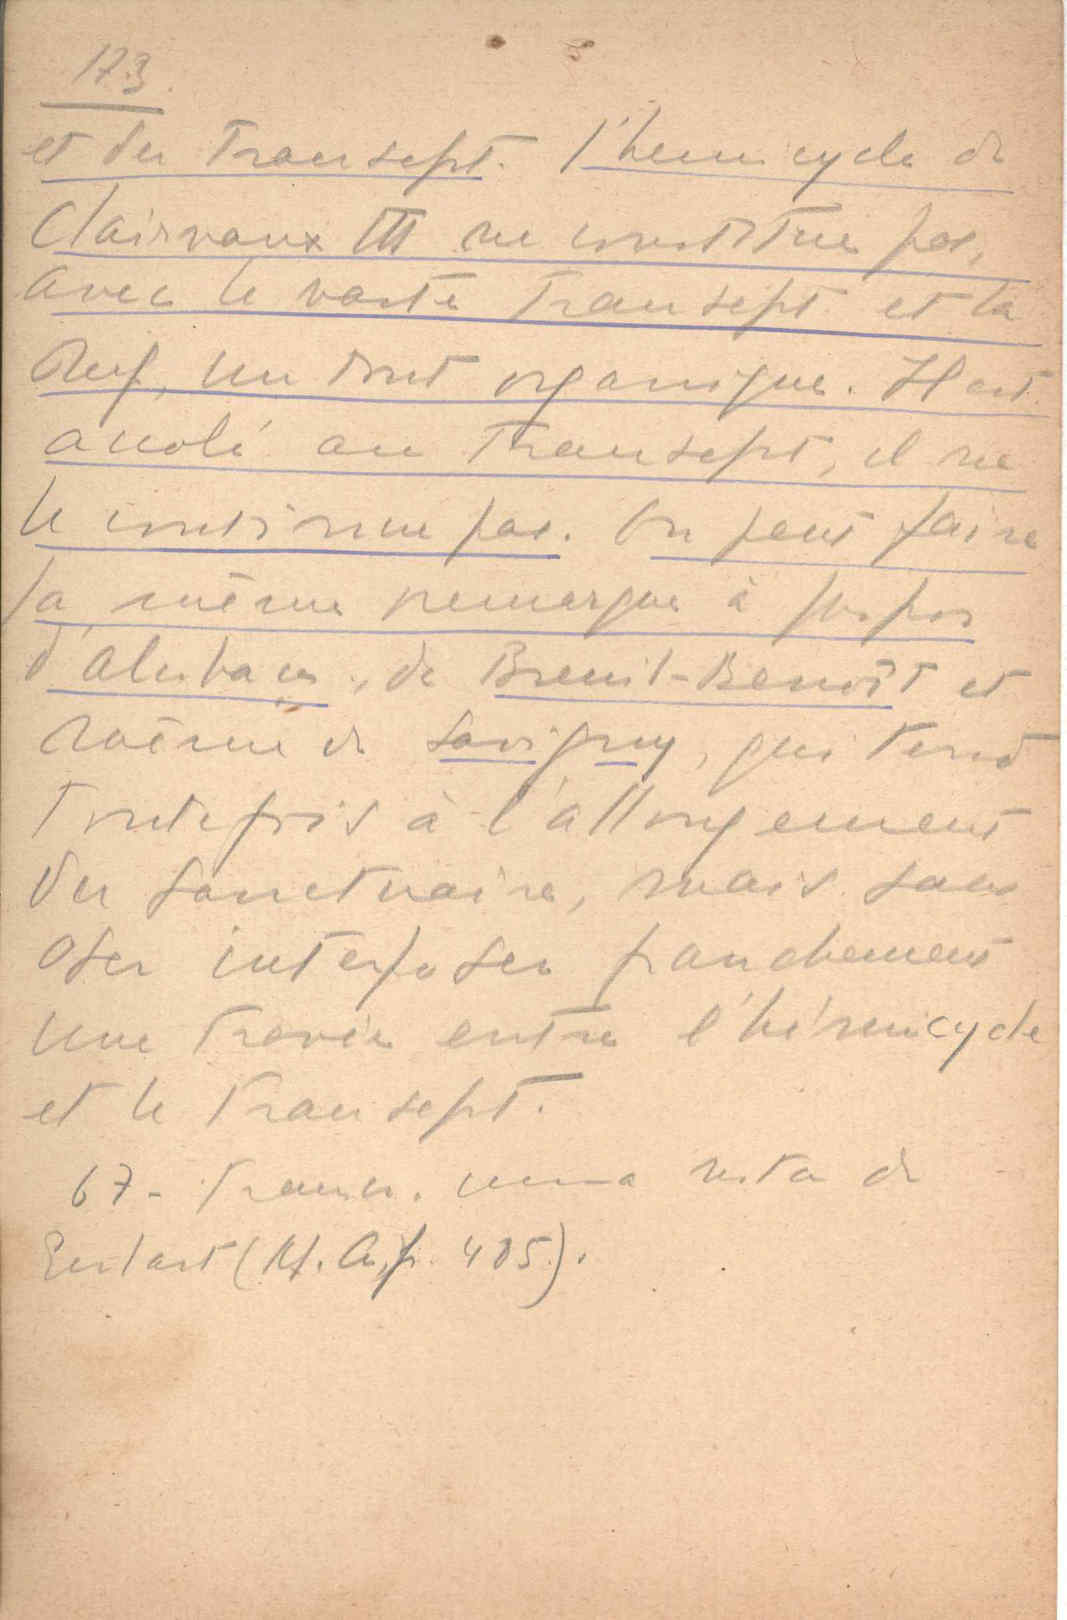 173.
et du Transept. l'hemicycle de
Clairvaux III ne constitue pas,
avec le vaste Transept et la
nef, un tout organique. Il est
accolé au Transept, il ne
le continue pas. On peut faire
la même remarque à propos
d'Alcobaça, de Breuil-Benoît et
même de Savigny, qui tend
toutefois à l'allongement
du sanctuaire, mais sans
oser interposer franchement
une travée entre l'hémicycle
et le transept.
67 - Transcr. uma nota de
Enlart (M. A., p. 485).